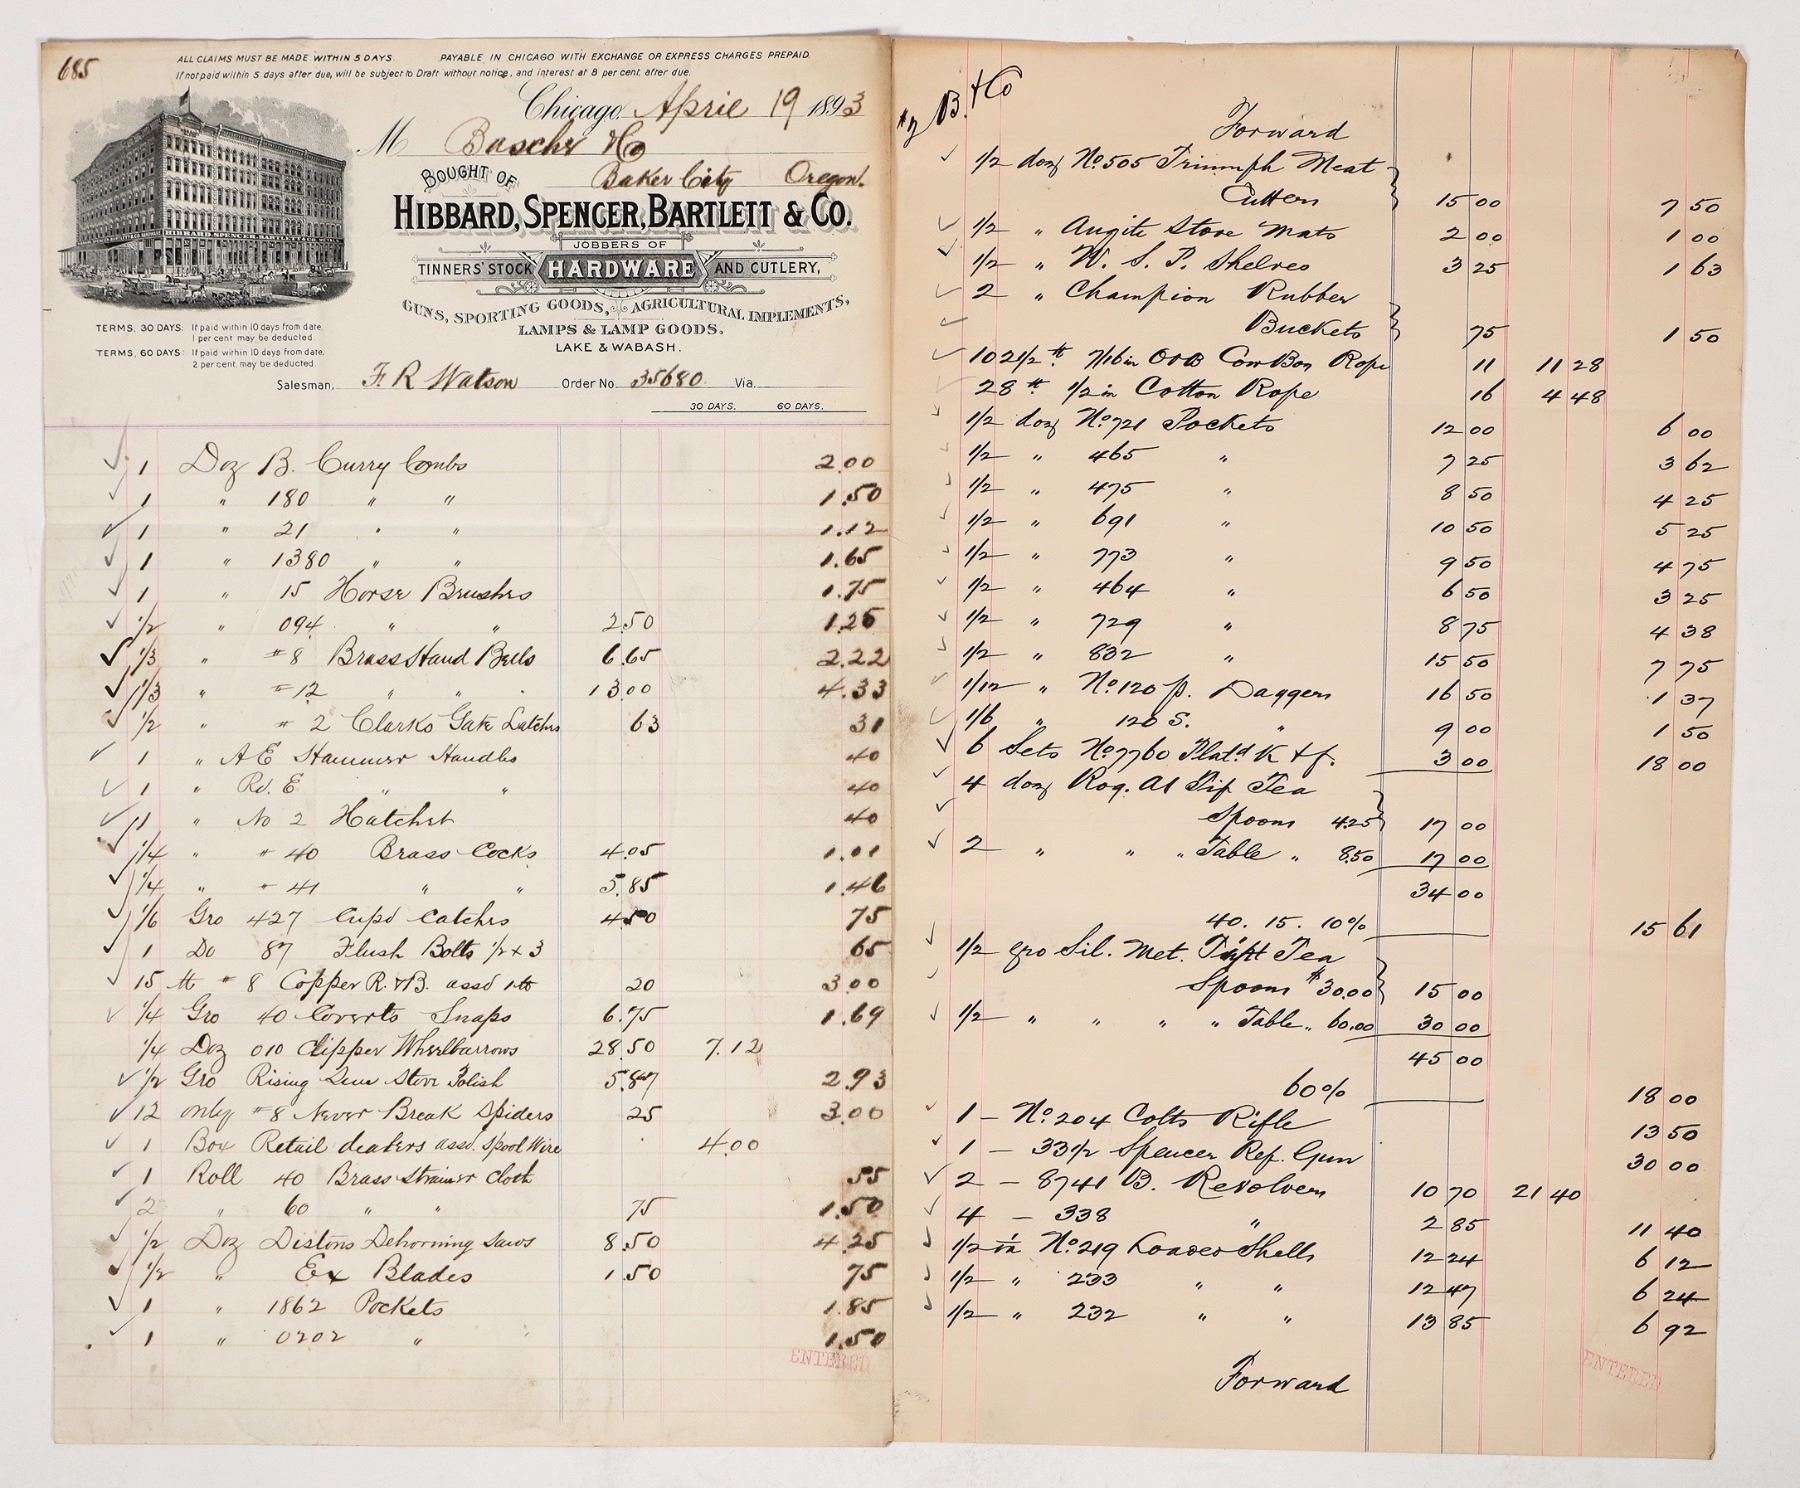 685
ALL CLAIMS MUST BE MADE WITHIN 5 DAYS. PAYABLE IN CHICAGO WITH EXCHANGE OR EXPRESS CHARGES PREPAID.
If not paid within 5 days after due, will be subject to Draft without notice, and interest at 8 per cent. after due.
Chicago, April 19 1893
M Basche & Co
Baker City Oregon.
BOUGHT OF
HIBBARD, SPENCER, BARTLETT & CO.
JOBBERS OF
TINNERS' STOCK HARDWARE AND CUTLERY,
GUNS, SPORTING GOODS, AGRICULTURAL IMPLEMENTS,
LAMPS & LAMP GOODS.
LAKE & WABASH.
HIBBARD SPENCER BARTLETT & CO.
TERMS, 30 DAYS: If paid within 10 days from date, 1 per cent may be deducted.
TERMS, 60 DAYS: If paid within 10 days from date, 2 per cent. may be deducted.
Salesman, F. R Watson Order No. 35680 Via.
30 DAYS. 60 DAYS.
1 Doz B. Curry Combs 2.00
1 " 180 " " 1.50
1 " 21 " " 1.12
1 " 1380 " " 1.65
1 " 15 Horse Brushes 1.75
1/2 " 094 " " 2.50 1.25
1/3 " #8 Brass Hand Bells 6.65 2.22
1/3 " #12 " " " 13.00 4.33
1/2 " #2 Clarks Gate Latches 63 31
1 " A E Hammer Handles 40
1 " Rd. E " " 40
1 " No 2 Hatchet 40
1/4 " #40 Brass Cocks 4.05 1.01
1/4 " #41 " " 5.85 1.46
1/6 Gro 427 Cupd Catches 4.50 75
1 Do 87 Flush Bolts 1/2 x 3 65
15 lb #8 Copper R. & B. assd 20 3.00
1/4 Gro 40 Coverts Snaps 6.75 1.69
1/4 Doz 010 Clipper Wheelbarrows 28.50 7.12
1/2 Gro Rising Sun Stove Polish 5.87 2.93
12 only #8 Never Break Spiders 25 3.00
1 Box Retail dealers assd. Spool Wire 4.00
1 Roll 40 Brass Strainer Cloth 55
2 " 60 " " 75 1.50
1/2 Doz Distons Dehorning Saws 8.50 4.25
1/2 " Ex Blades 1.50 75
1 " 1862 Pockets 1.85
1 " 0202 " 1.50
ENTERED
#2 B. & Co
Forward
1/2 doz No. 505 Triumph Meat
Cutters 15 00 7 50
1/2 " Augite Stove Mats 2 00 1 00
1/2 " W. S. P. Shelves 3 25 1 63
2 " Champion Rubber
Buckets 75 1 50
102 1/2 lb 7/16 in Cow Boy Rope 11 11 28
28 lb 1/2 in Cotton Rope 16 4 48
1/2 doz No. 721 Pockets 12 00 6 00
1/2 " 465 " 7 25 3 62
1/2 " 475 " 8 50 4 25
1/2 " 691 " 10 50 5 25
1/2 " 773 " 9 50 4 75
1/2 " 464 " 6 50 3 25
1/2 " 729 " 8 75 4 38
1/2 " 832 " 15 50 7 75
1/12 " No. 120 p. Daggers 16 50 1 37
1/6 " 120 S. " 9 00 1 50
6 Sets No. 7760 Platd K & f. 3 00 18 00
4 doz Rog. A1 Tip Tea
Spoons 4.25 17 00
2 " " " Table " 8.50 17 00
34 00
40. 15. 10% 15 61
1/2 gro Sil. Met. Tea
Spoons $30.00 15 00
1/2 " " " " Table " 60.00 30 00
45 00
60% 18 00
1 - No. 204 Colts Rifle 13 50
1 - 33 1/2 Spencer Rep. Gun 30 00
2 - 8741 B. Revolvers 10 70 21 40
4 - 338 " 2 85 11 40
1/2 m No. 219 Loaded Shells 12 24 6 12
1/2 " 233 " " 12 47 6 24
1/2 " 232 " " 13 85 6 92
Forward
ENTERED